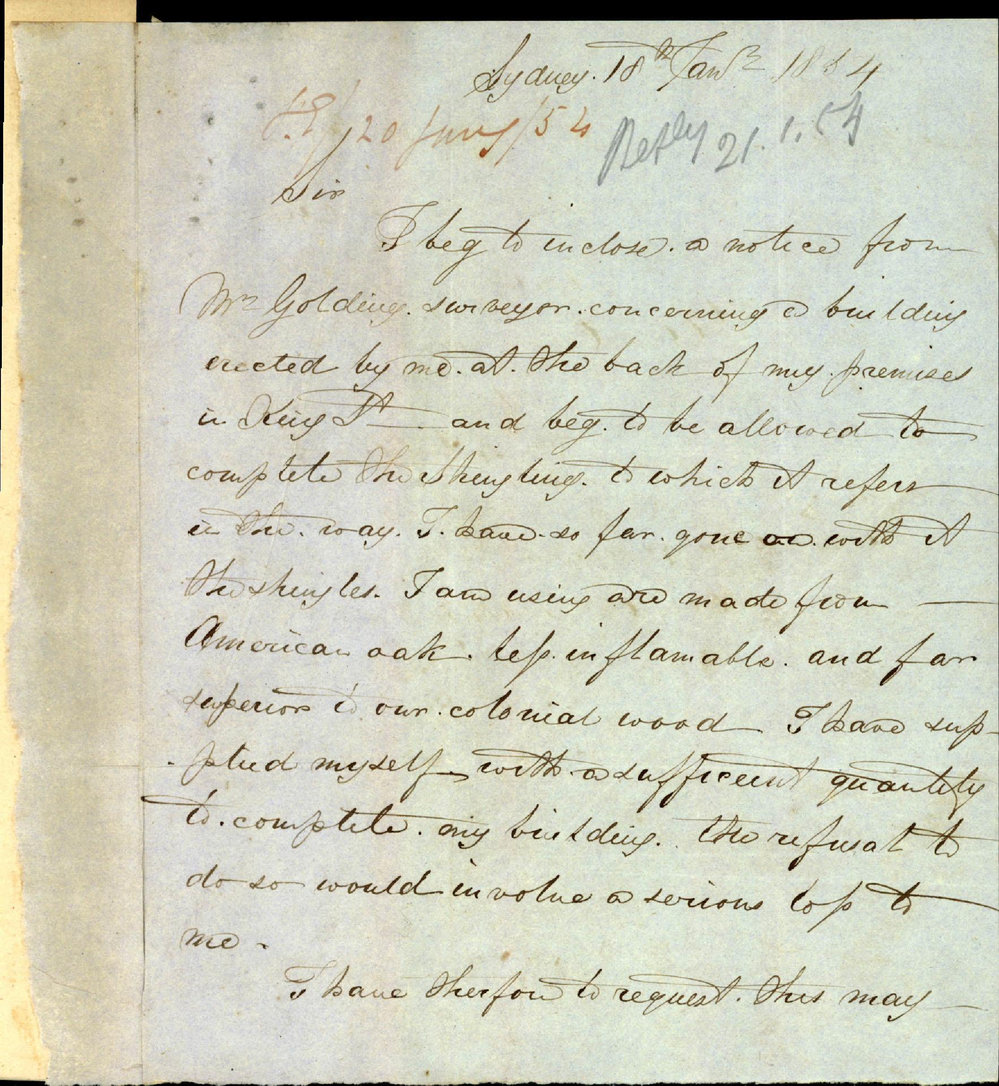 Sydney. 18th Jany 1854
20 Jany/54
Reply 21.1.54
Sir
I beg to inclose. a notice from
Mr Golding. surveyor. concerning a building
erected by me. at. the back of my. premises
in King St and beg. to be allowed to
complete the shingling. to which it refers
in the. way. I. have. so far. gone on. with it
the shingles. I am using are made from
American oak. less. inflamable. and far
superior to our. colonial wood I have sup-
-plied myself with a sufficient quantity
to. complete. my building. the refusal to
do so would involve a serious loss to
me.
I have therfore to request. this may